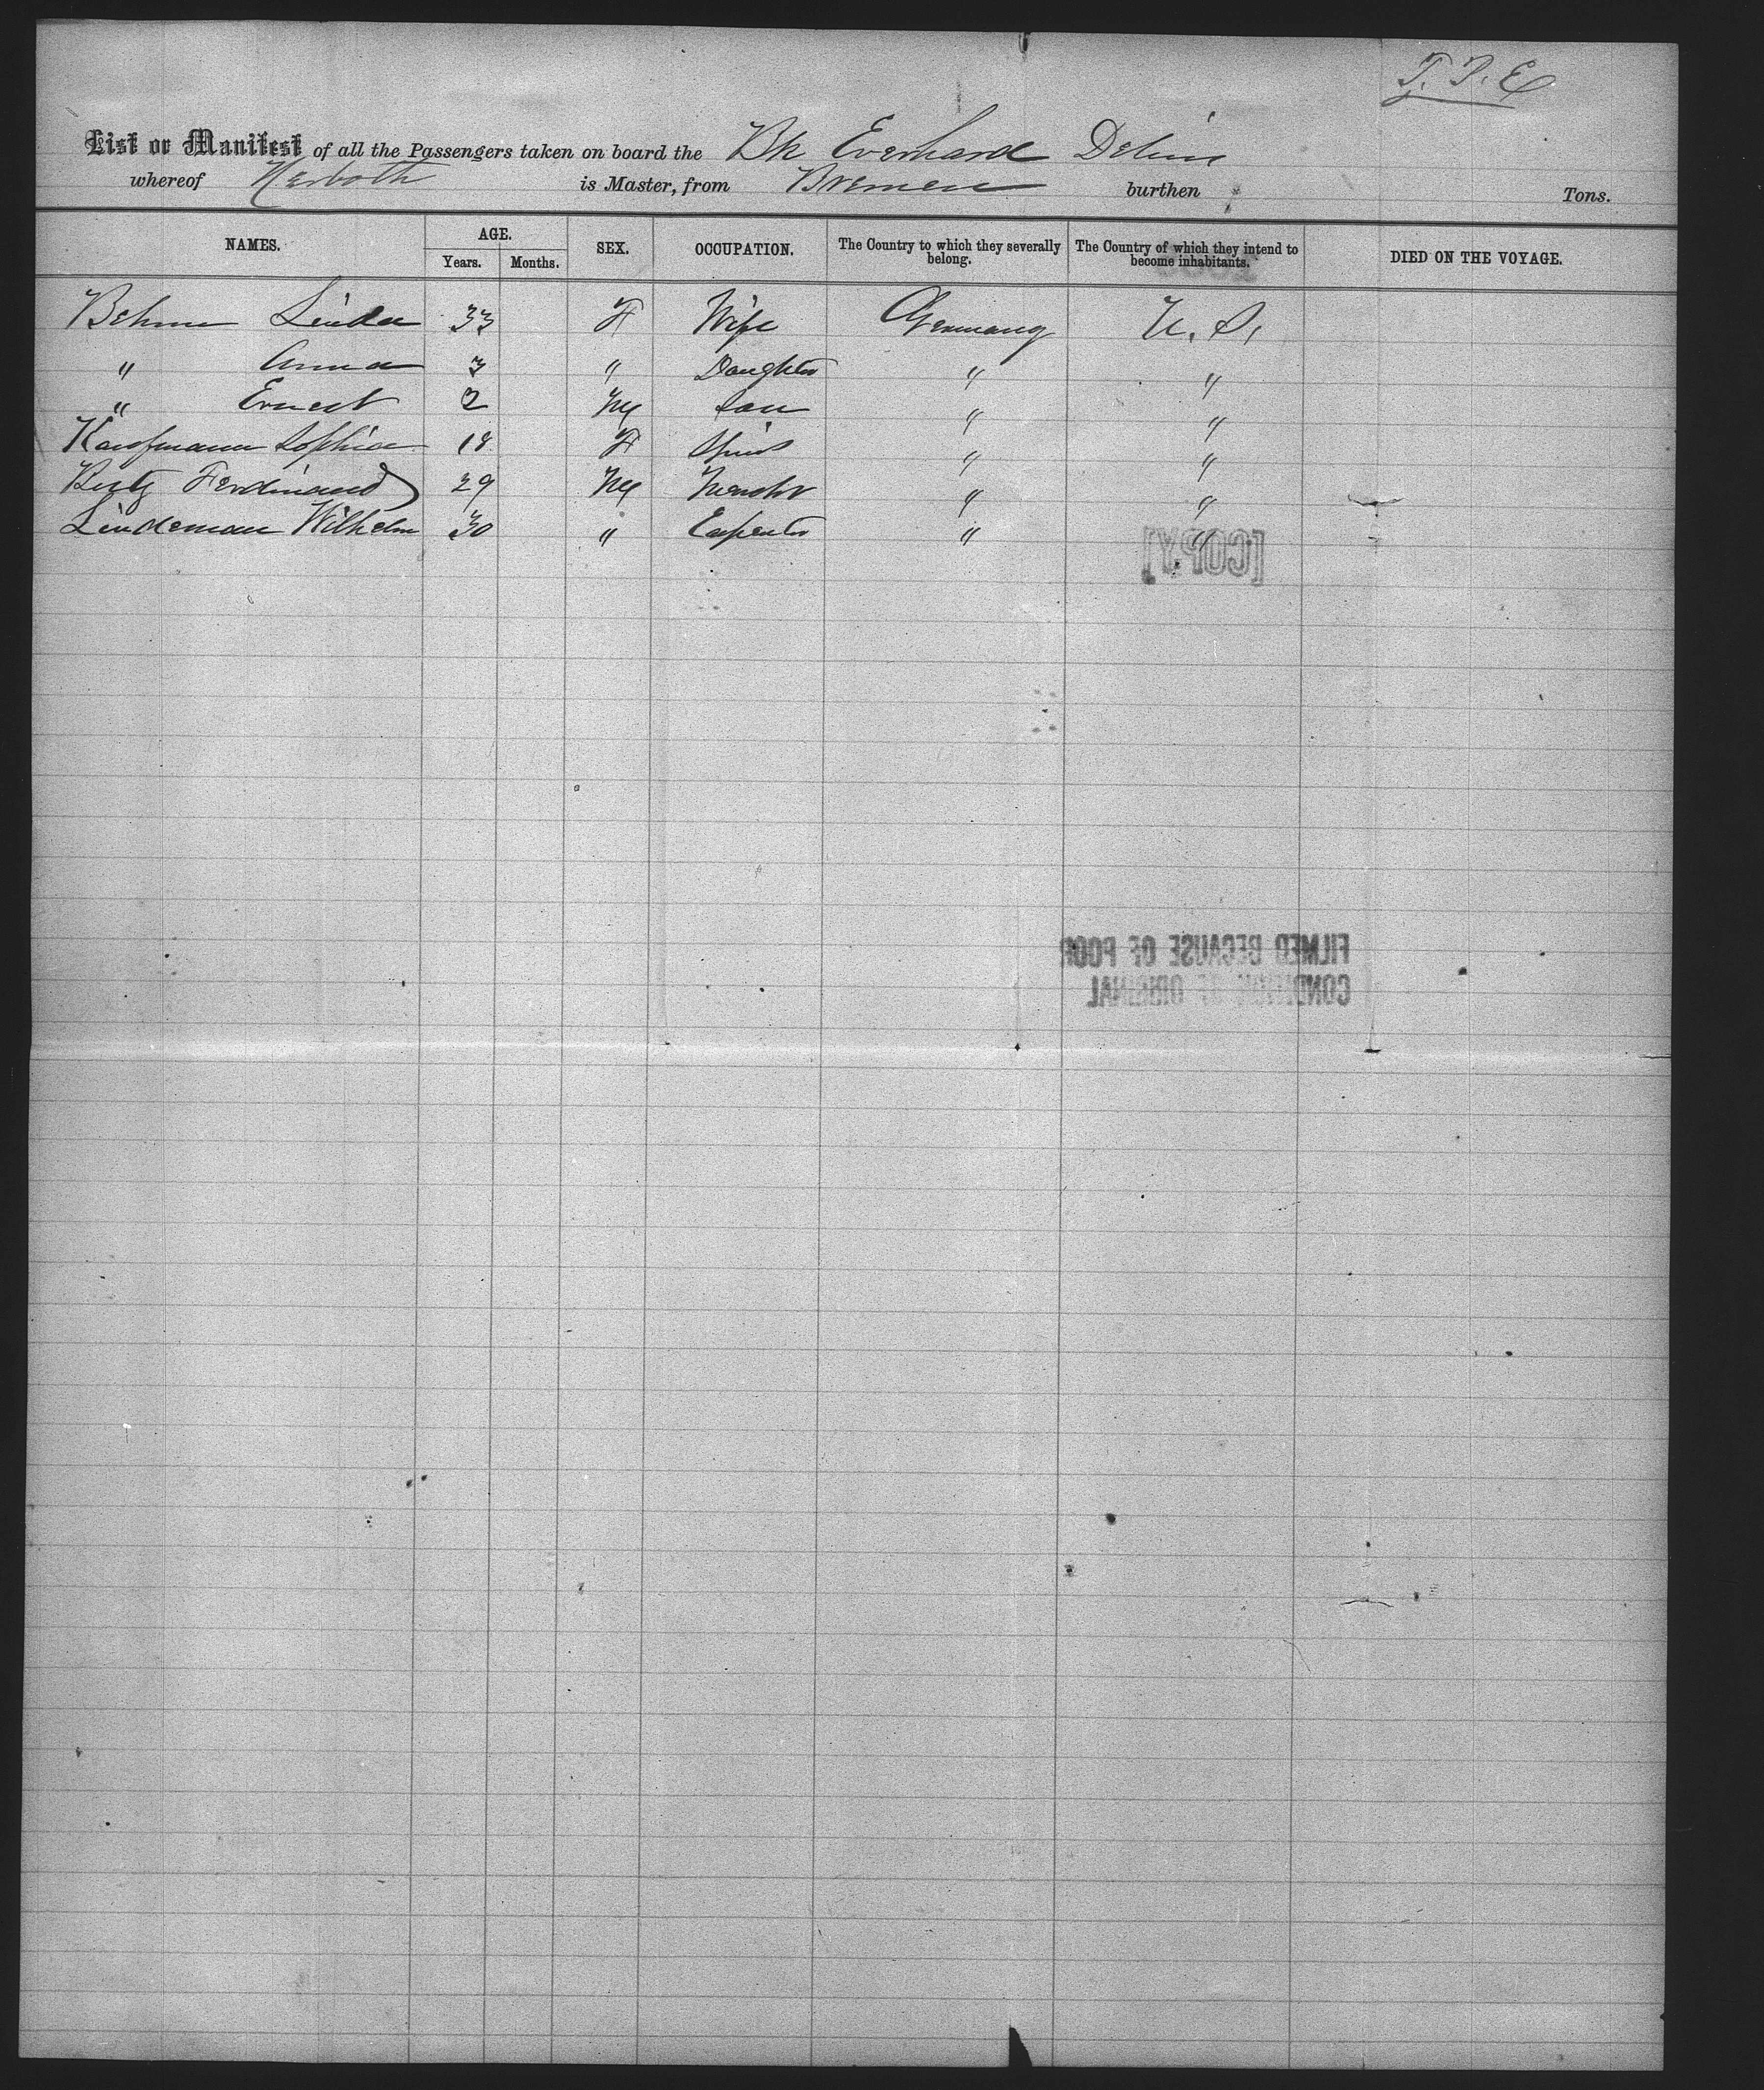 T. P. E
List or Manifest of all the Passengers taken on board the Bk Everhard Delius
whereof is Master, from Bremen burthen Tons.
NAMES. AGE. Years. Months. SEX. OCCUPATION. The Country to which they severally belong. The Country of which they intend to become inhabitants. DIED ON THE VOYAGE.
Behm Linda 33 F Wife Germany U. S.
" Anna 3 " Daughter " "
" Ernest 2 M Son " "
Kaufmann Sophia 18 F Spins " "
Ferdinand 29 M " "
Lindeman Wilhelm 30 " Carpenter " "
[COPY]
FILMED BECAUSE OF POOR
CONDITION OF ORIGINAL